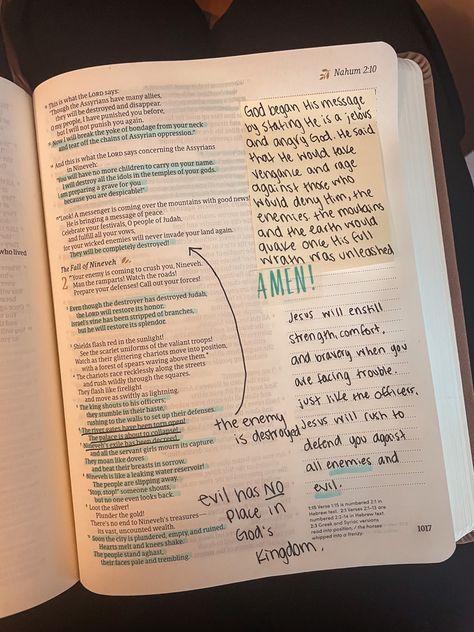 Nahum 2:10
12 This is what the LORD says:
"Though the Assyrians have many allies,
they will be destroyed and disappear.
O my people, I have punished you before,
but I will not punish you again.
13 Now I will break the yoke of bondage from your neck
and tear off the chains of Assyrian oppression."
14 And this is what the LORD says concerning the Assyrians
in Nineveh:
"You will have no more children to carry on your name.
I will destroy all the idols in the temples of your gods.
I am preparing a grave for you
because you are despicable!"
15 Look! A messenger is coming over the mountains with good news!
He is bringing a message of peace.
Celebrate your festivals, O people of Judah,
and fulfill all your vows,
for your wicked enemies will never invade your land again.
They will be completely destroyed!
The Fall of Nineveh
2 "Your enemy is coming to crush you, Nineveh.
Man the ramparts! Watch the roads!
Prepare your defenses! Call out your forces!
2 Even though the destroyer has destroyed Judah,
the LORD will restore its honor.
Israel's vine has been stripped of branches,
but he will restore its splendor.
3 Shields flash red in the sunlight!
See the scarlet uniforms of the valiant troops!
Watch as their glittering chariots move into position,
with a forest of spears waving above them."
4 The chariots race recklessly along the streets
and rush wildly through the squares.
They flash like firelight
and move as swiftly as lightning.
5 The king shouts to his officers;
they stumble in their haste,
rushing to the walls to set up their defenses.
6 The river gates have been torn open!
The palace is about to collapse!
7 Nineveh's exile has been decreed,
and all the servant girls mourn its capture.
They moan like doves
and beat their breasts in sorrow.
8 Nineveh is like a leaking water reservoir!
The people are slipping away.
"Stop, stop!" someone shouts,
but no one even looks back.
9 Loot the silver!
Plunder the gold!
There's no end to Nineveh's treasures—
its vast, uncounted wealth.
10 Soon the city is plundered, empty, and ruined.
Hearts melt and knees shake.
The people stand aghast,
their faces pale and trembling.
God began His message
by stating He is a jelous
and angry God. He said
that He would have
vengance and rage
against those who
would deny Him, the
enemies. the moutains
and the earth would
quake one His full
wrath was unleashed
AMEN!
Jesus will enstill
strength, comfort,
and bravery when you
are facing trouble.
just like the officers,
Jesus will rush to
defend you against
all enemies and
evil.
the enemy
is destroyed
evil has NO
place in
God's
Kingdom.
1:15 Verse 1:15 is numbered 2:1 in
Hebrew text. 2:1 Verses 2:1-13 are
numbered 2:2-14 in Hebrew text.
2:3 Greek and Syriac versions
read into position, / the horses
whipped into a frenzy.
1017
who lived